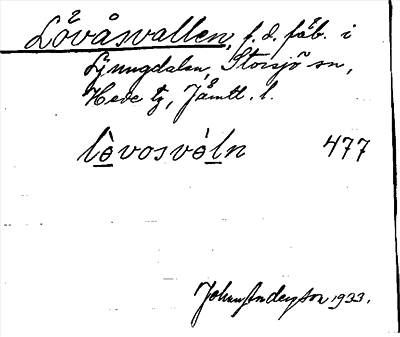 Lövåsvallen, f. d. fäb. i
Ljungdalen, Storsjö sn,
Hede tg, Jämtl. l.
lòvosvòln 477
Johan Anderson 1933.